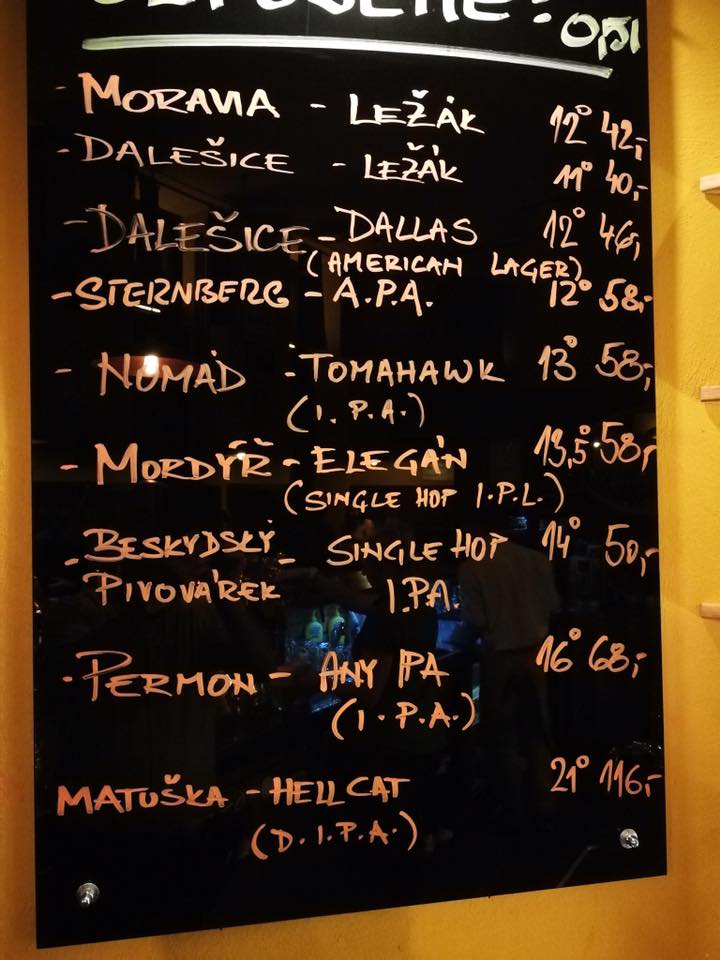 0,5l
- MORAVIA - LEŽÁK 12° 42,-
- DALEŠICE - LEŽÁK 11° 40,-
- DALEŠICE - DALLAS 12° 46,-
(AMERICAN LAGER)
- STERNBERG - A.P.A. 12° 58,-
- NOMÁD - TOMAHAWK 13° 58,-
(I.P.A.)
- MORDÝŘ - ELEGÁN 13,5° 58,-
(SINGLE HOP I.P.L.)
- BESKYDSKÝ - SINGLE HOP 14° 50,-
PIVOVÁREK I.P.A.
- PERMON - ANY IPA 16° 68,-
(I.P.A.)
MATUŠKA - HELLCAT 21° 116,-
(D.I.P.A.)